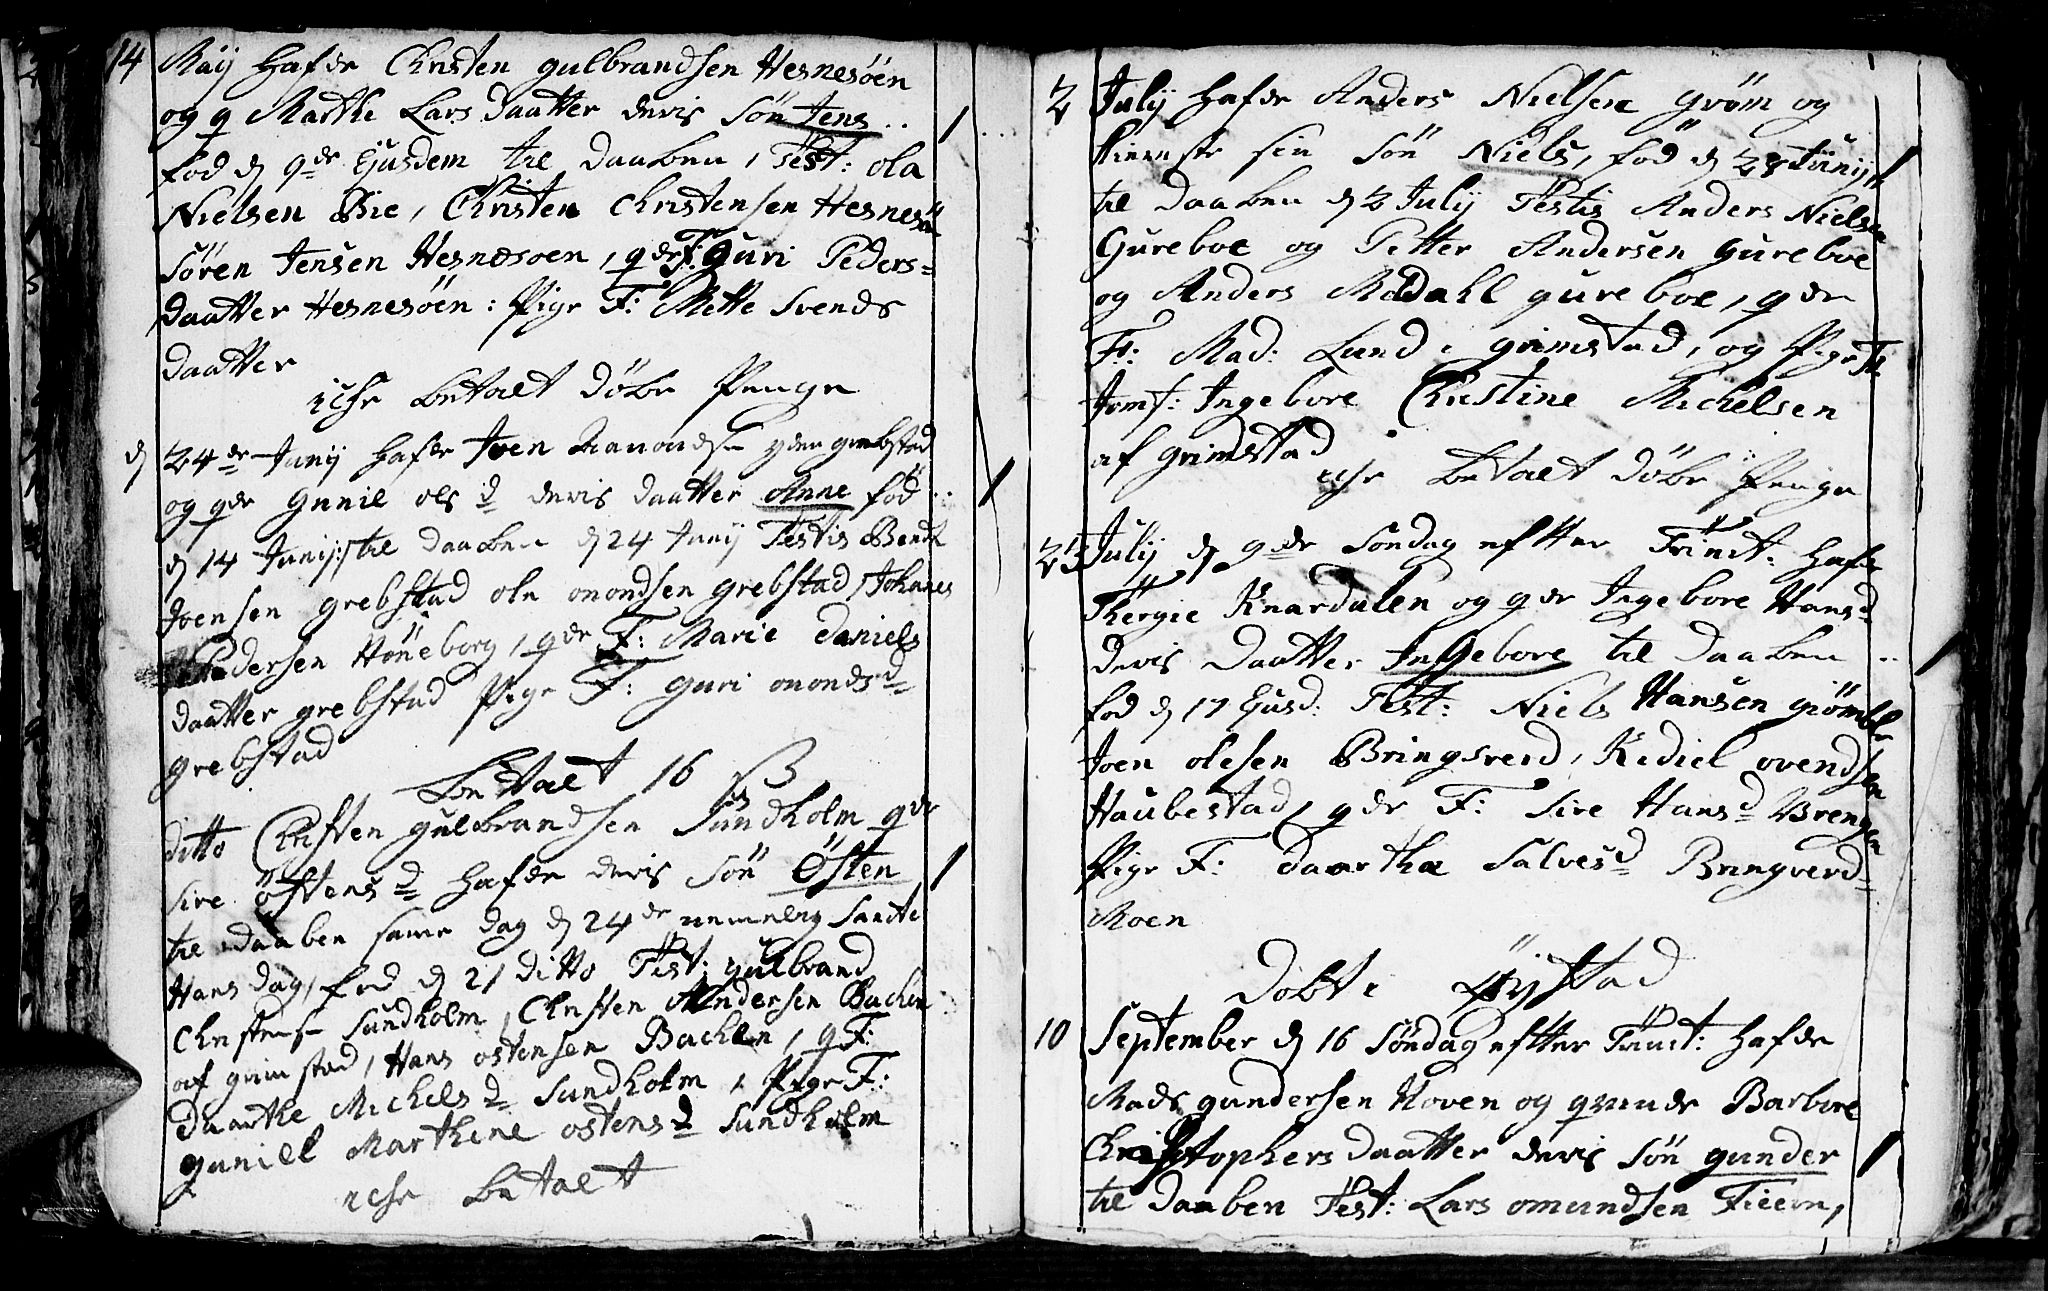 14 Maij hafde Christen gulbrandsen Hesnesöen
og q Marthe Lars Daatter deris Sön Jens ..
fod d 9de Ejusdem til Daaben, Test: ola
Nielsen Bie, Christen Christensen Hesnesöe
Sören Jensen Hesnæsoen, qde F: Guri Peders=
daatter Hesnesöen: Pige F: Mette Svends
daatter
icke betalt Döbe Penge
d 24de Junij hafde Joen grebstad
og qde Gunil ols d deris daatter Anne föd ..
d 14 Junij til daaben d 24 Junij Testis Bendt
Joensen grebstad ole onondsen grebstad, Johannes
Pedersen Höneborg, qde F: Marie daniels
daatter grebstad Pige F: guri ononds d
grebstad
betalt 16 s
ditto Christen gulbrandsen Sundholm qde
Sire östens d hafde deris Sön Östen
til daaben samme dag d 24de nemlig Sancte
Hans dag, fod d 21 ditto Test: gulbrand
Christens: Sundholm, Christen Andersen Bachen
af grimstad, Hans ostensen Bachen, q F:
Daarthe Michels d Sundholm, Pige F:
guniel Marthene ostens d Sundholm
icke betalt
2 Julij hafde Anders Nielsen gröm og
sin Sön Niels, föd d 28 Junij
til daaben d 2 Julij Testis Anders Nielsen
Gureboe og Petter Andersen gureboe
og Anders Modahl gureboe, qde
F: Mad: Lund i grimstad, og Pige F:
Jomf: Ingebore Christine Michelsen
af grimstad
icke betalt Döbe Penge
23 Julij d 9de Söndag eftter Trinit: hafde
Tergie Knardalen og qde Ingebore Hans d
deris Daatter Ingebore til Daaben ..
fod d 17 Ejusd: Test: Niels Hansen
Joen olesen Bringsverd, Kediel ovendsen
Haubestad, qde F: Sire Hans d
Pige F: Daartha Salves d Bringverd=
Moen
Döbt i Fiystad
10 September d 16 Söndag eftter Trinit: hafde
Mads gundersen Hoven og qvinde Barbore
Christophers daatter deris Sön gunder
til Daaben Test: Lars omundsen